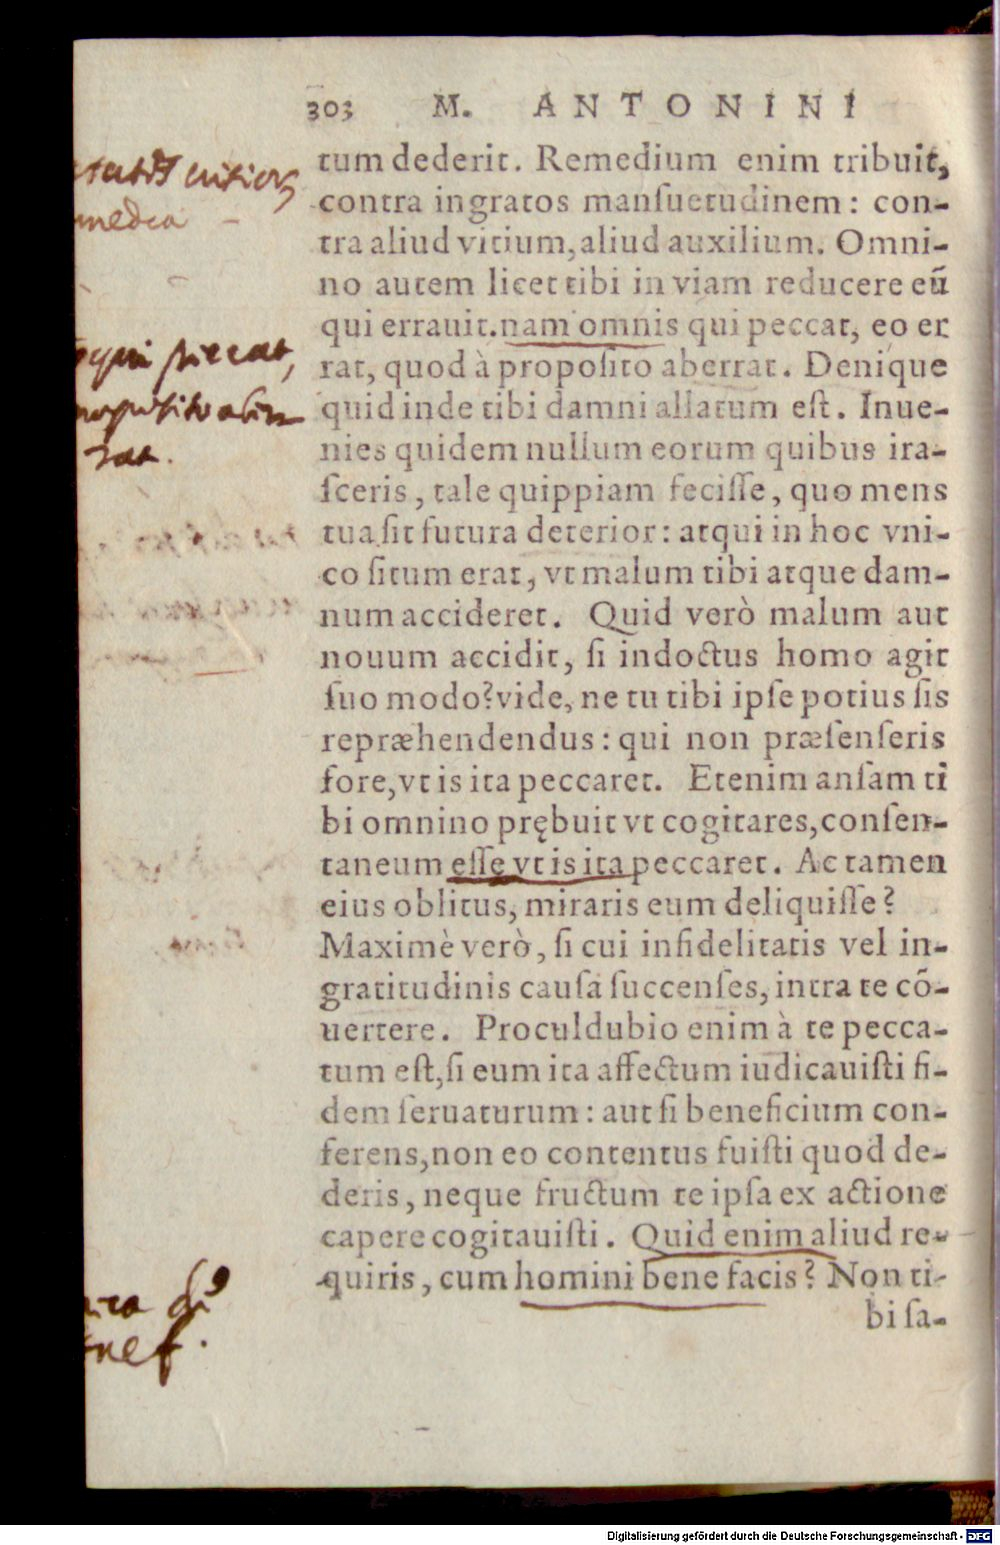 303 M. ANTONINI
tum dederit. Remedium enim tribuit,
contra ingratos manſuetudinem: con-
tra aliud vitium, aliud auxilium. Omni-
no autem licet tibi in viam reducere eū
qui errauit. nam omnis qui peccat, eo er
rat, quod à propoſito aberrat. Denique
quid inde tibi damni allatum eſt. Inue-
nies quidem nullum eorum quibus ira-
ſceris, tale quippiam feciſſe, quo mens
tua ſit futura deterior: atqui in hoc vni-
co ſitum erat, vt malum tibi atque dam-
num accideret. Quid verò malum aut
nouum accidit, ſi indoctus homo agit
ſuo modo? vide, ne tu tibi ipſe potius ſis
repræhendendus: qui non præſenſeris
fore, vt is ita peccaret. Etenim anſam ti
bi omnino prębuit vt cogitares, conſen-
taneum eſſe vt is ita peccaret. Ac tamen
eius oblitus, miraris eum deliquiſſe?
Maximè verò, ſi cui infidelitatis vel in-
gratitudinis cauſa ſuccenſes, intra te cō-
uertere. Proculdubio enim à te pecca-
tum eſt, ſi eum ita affectum iudicauiſti fi-
dem ſeruaturum: aut ſi beneficium con-
ferens, non eo contentus fuiſti quod de-
deris, neque fructum te ipſa ex actione
capere cogitauiſti. Quid enim aliud re-
quiris, cum homini bene facis? Non ti-
bi ſa-
qui peccat,
rat.
Digitalisierung gefördert durch die Deutsche Forschungsgemeinschaft - DFG